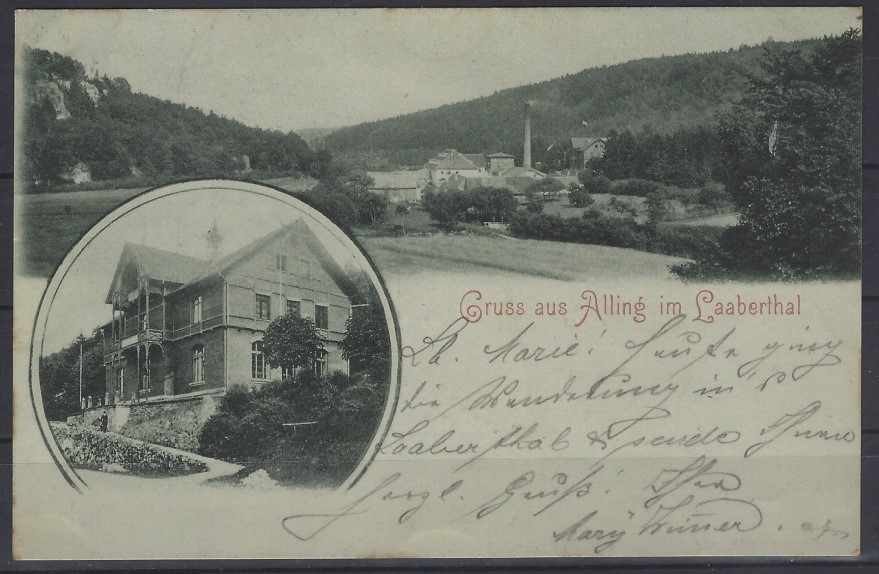 Gruss aus Alling im Laaberthal
Lb. Marie! Heute ging
die Wanderung in's
Laaberthal & sende Ihnen
herzl. Gruß! Ihre
Mary